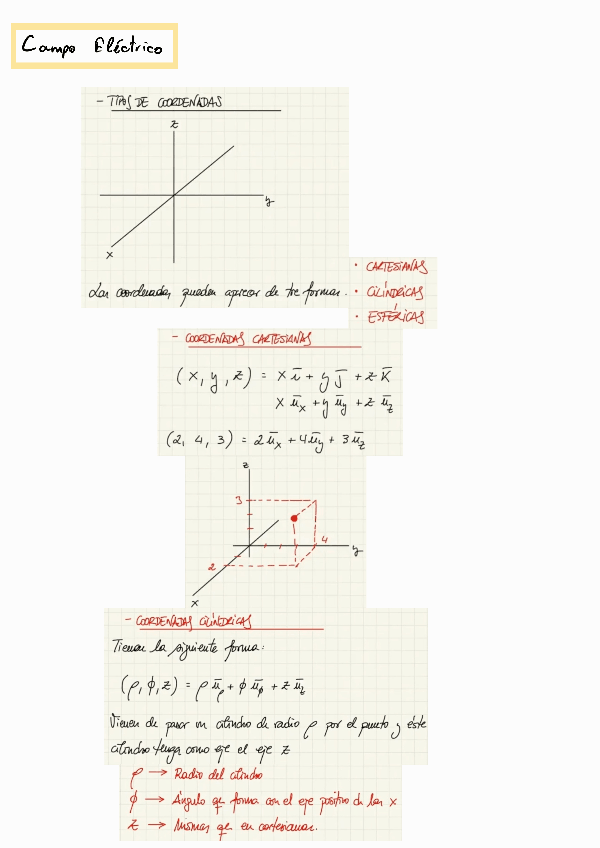 Campo Eléctrico
- TIPOS DE COORDENADAS
z
y
x
Las coordenadas pueden aparecer de tre formas.
• CARTESIANAS
• CILÍNDRICAS
• ESFÉRICAS
- COORDENADAS CARTESIANAS
(x, y, z) = x i̅ + y j̅ + z k̅
x u̅x + y u̅y + z u̅z
(2, 4, 3) = 2 u̅x + 4 u̅y + 3 u̅z
z
3
4
y
2
x
- COORDENADAS CILÍNDRICAS
Tienen la siguiente forma:
(ρ, ϕ, z) = ρ u̅ρ + ϕ u̅ϕ + z u̅z
Vienen de pasar un cilindro de radio ρ por el punto y éste
cilindro tenga como eje el eje z
ρ → Radio del cilindro
ϕ → Ángulo que forma con el eje positivo de las x
z → Mismas que en cartesianas.